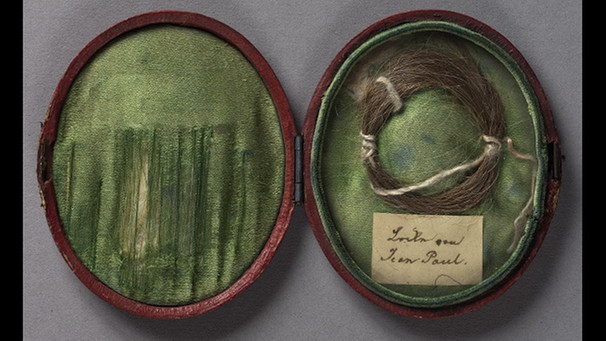 Locken von
Jean Paul.